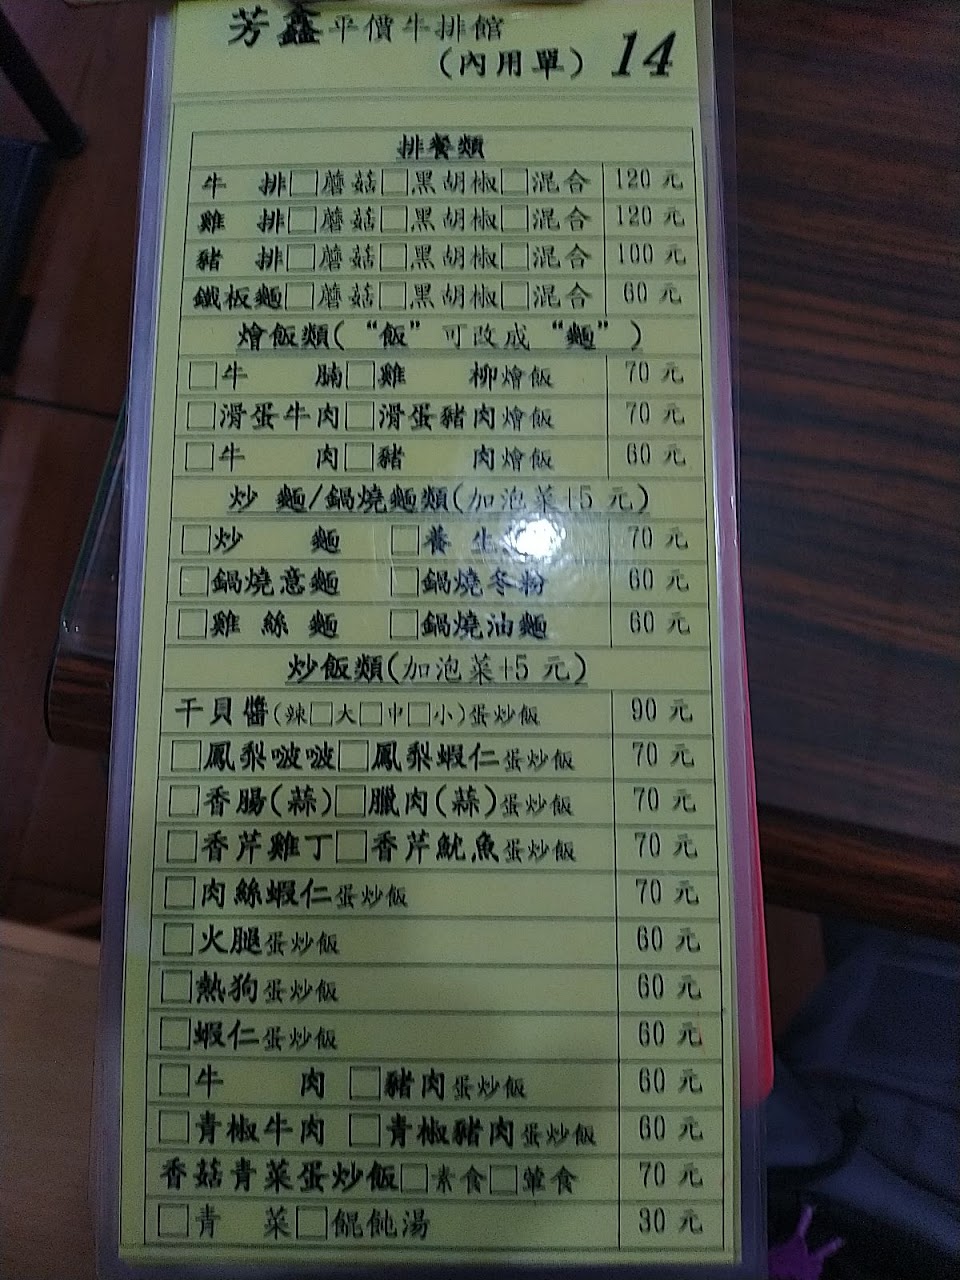 芳鑫平價牛排館
(內用單) 14
排餐類
牛 排□蘑菇□黑胡椒□混合 120 元
雞 排□蘑菇□黑胡椒□混合 120 元
豬 排□蘑菇□黑胡椒□混合 100 元
鐵板麵□蘑菇□黑胡椒□混合 60 元
燴飯類(“飯”可改成“麵”)
□牛 腩□雞 柳燴飯 70 元
□滑蛋牛肉□滑蛋豬肉燴飯 70 元
□牛 肉□豬 肉燴飯 60 元
炒 麵/鍋燒麵類(加泡菜+5 元)
□炒 麵 □養 生 70 元
□鍋燒意麵 □鍋燒冬粉 60 元
□雞 絲 麵 □鍋燒油麵 60 元
炒飯類(加泡菜+5 元)
干貝醬(辣□大□中□小)蛋炒飯 90 元
□鳳梨啵啵□鳳梨蝦仁蛋炒飯 70 元
□香腸(蒜)□臘肉(蒜)蛋炒飯 70 元
□香芹雞丁□香芹魷魚蛋炒飯 70 元
□肉絲蝦仁蛋炒飯 70 元
□火腿蛋炒飯 60 元
□熱狗蛋炒飯 60 元
□蝦仁蛋炒飯 60 元
□牛 肉 □豬肉蛋炒飯 60 元
□青椒牛肉 □青椒豬肉蛋炒飯 60 元
香菇青菜蛋炒飯□素食□葷食 70 元
□青 菜□餛飩湯 30 元